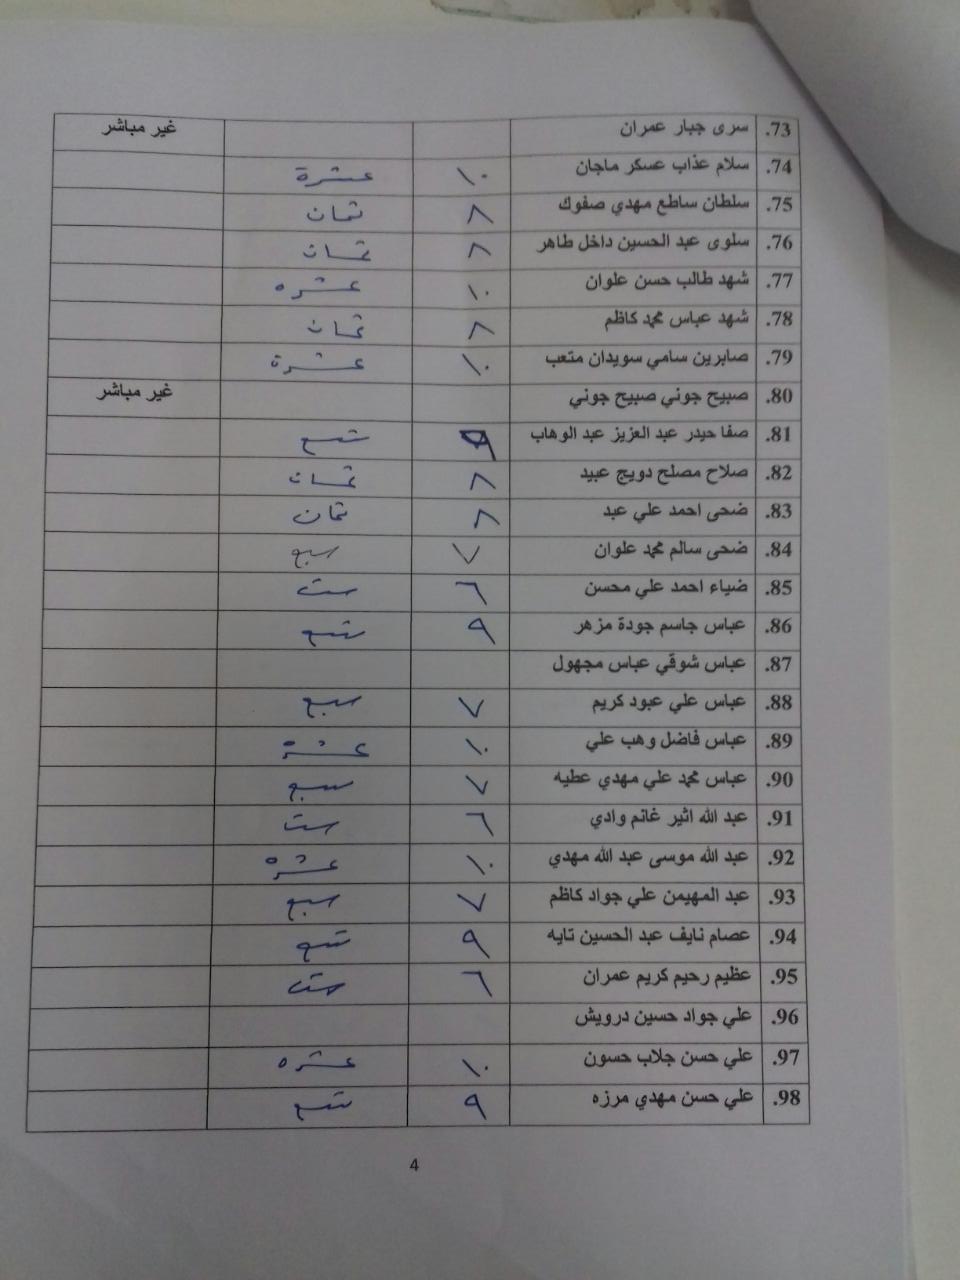 73. سرى جبار عمران غير مباشر
74. سلام عذاب عسكر ماجان ١٠ عشرة
75. سلطان ساطع مهدي صفوك ٨ ثمان
76. سلوى عبد الحسين داخل طاهر ٨ ثمان
77. شهد طالب حسن علوان ١٠ عشره
78. شهد عباس محمد كاظم ٨ ثمان
79. صابرين سامي سويدان متعب ١٠ عشرة
80. صبيح جوني صبيح جوني غير مباشر
81. صفا حيدر عبد العزيز عبد الوهاب ٩ تسع
82. صلاح مصلح دويج عبيد ٨ ثمان
83. ضحى احمد علي عبد ٨ ثمان
84. ضحى سالم محمد علوان ٧ سبع
85. ضياء احمد علي محسن ٦ ست
86. عباس جاسم جودة مزهر ٩ تسع
87. عباس شوقي عباس مجهول
88. عباس علي عبود كريم ٧ سبع
89. عباس فاضل وهب علي ١٠ عشرة
90. عباس محمد علي مهدي عطيه ٧ سبع
91. عبد الله اثير غانم وادي ٦ ست
92. عبد الله موسى عبد الله مهدي ١٠ عشره
93. عبد المهيمن علي جواد كاظم ٧ سبع
94. عصام نايف عبد الحسين تايه ٩ تسع
95. عظيم رحيم كريم عمران ٦ ست
96. علي جواد حسين درويش
97. علي حسن جلاب حسون ١٠ عشره
98. علي حسن مهدي مرزه ٩ تسع
4